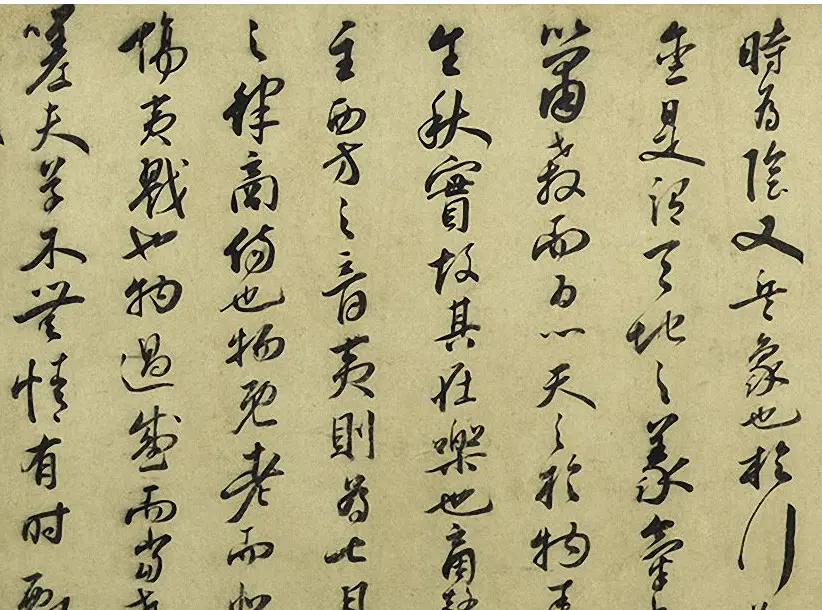 時為陰又兵象也於行
金是謂天地之義氣
以肅殺而為心天之於物
生秋實故其在樂也商
主西方之音夷則為七月
之律商傷也物既老而
傷夷戮也物過盛而當
嗟夫草木無情有时